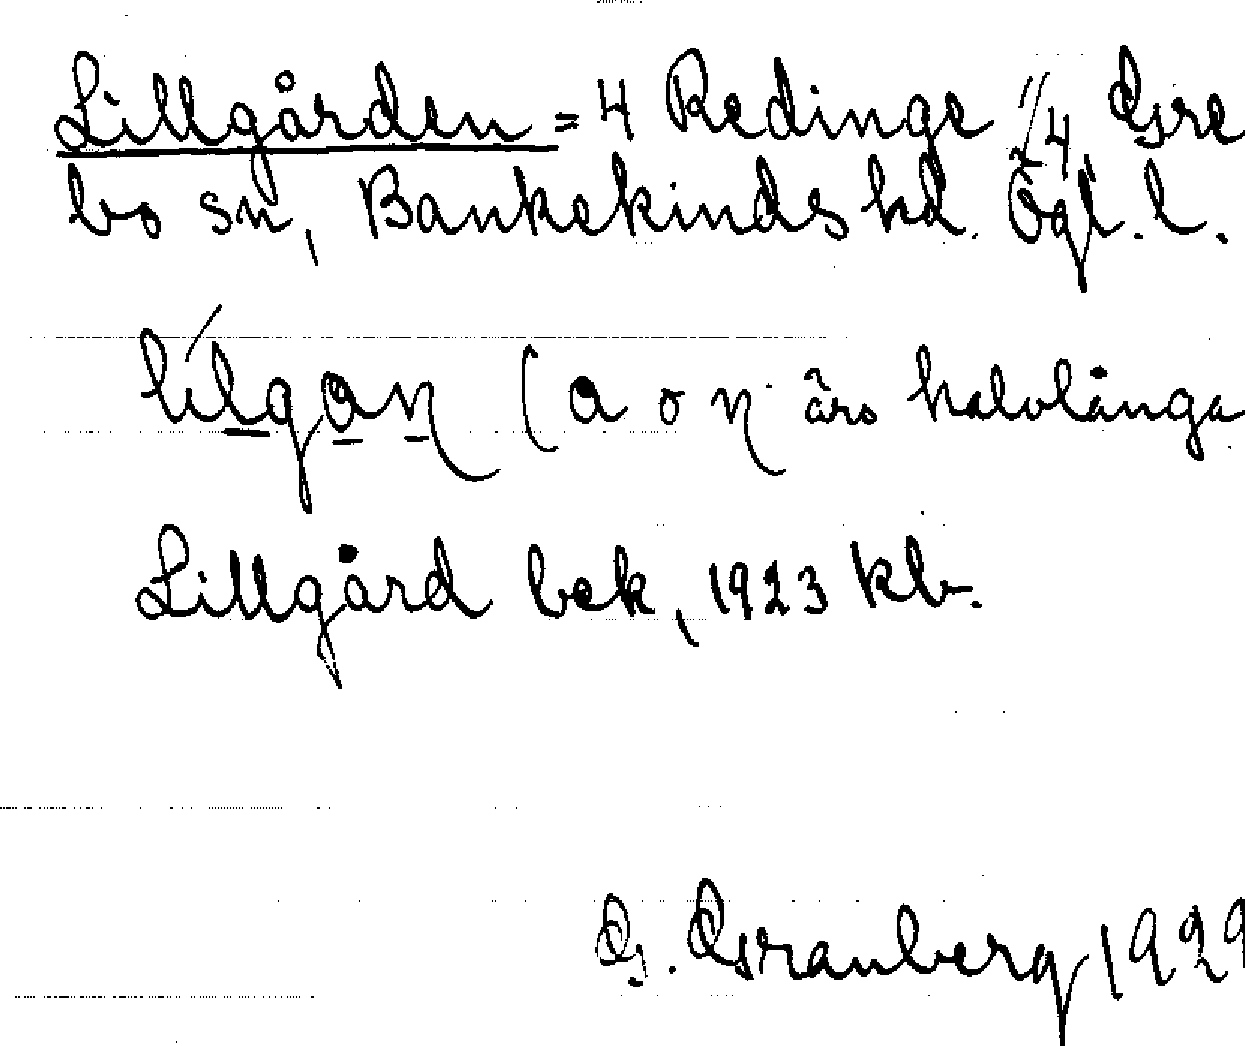 Lillgården = 4 Redinge 1/4 Gre
bo sn, Bankekinds hd. Ögl. l.
lílgaɳ (a o ɳ äro halvlånga
Lillgård bek, 1923 kb.
G. Granberg 1929